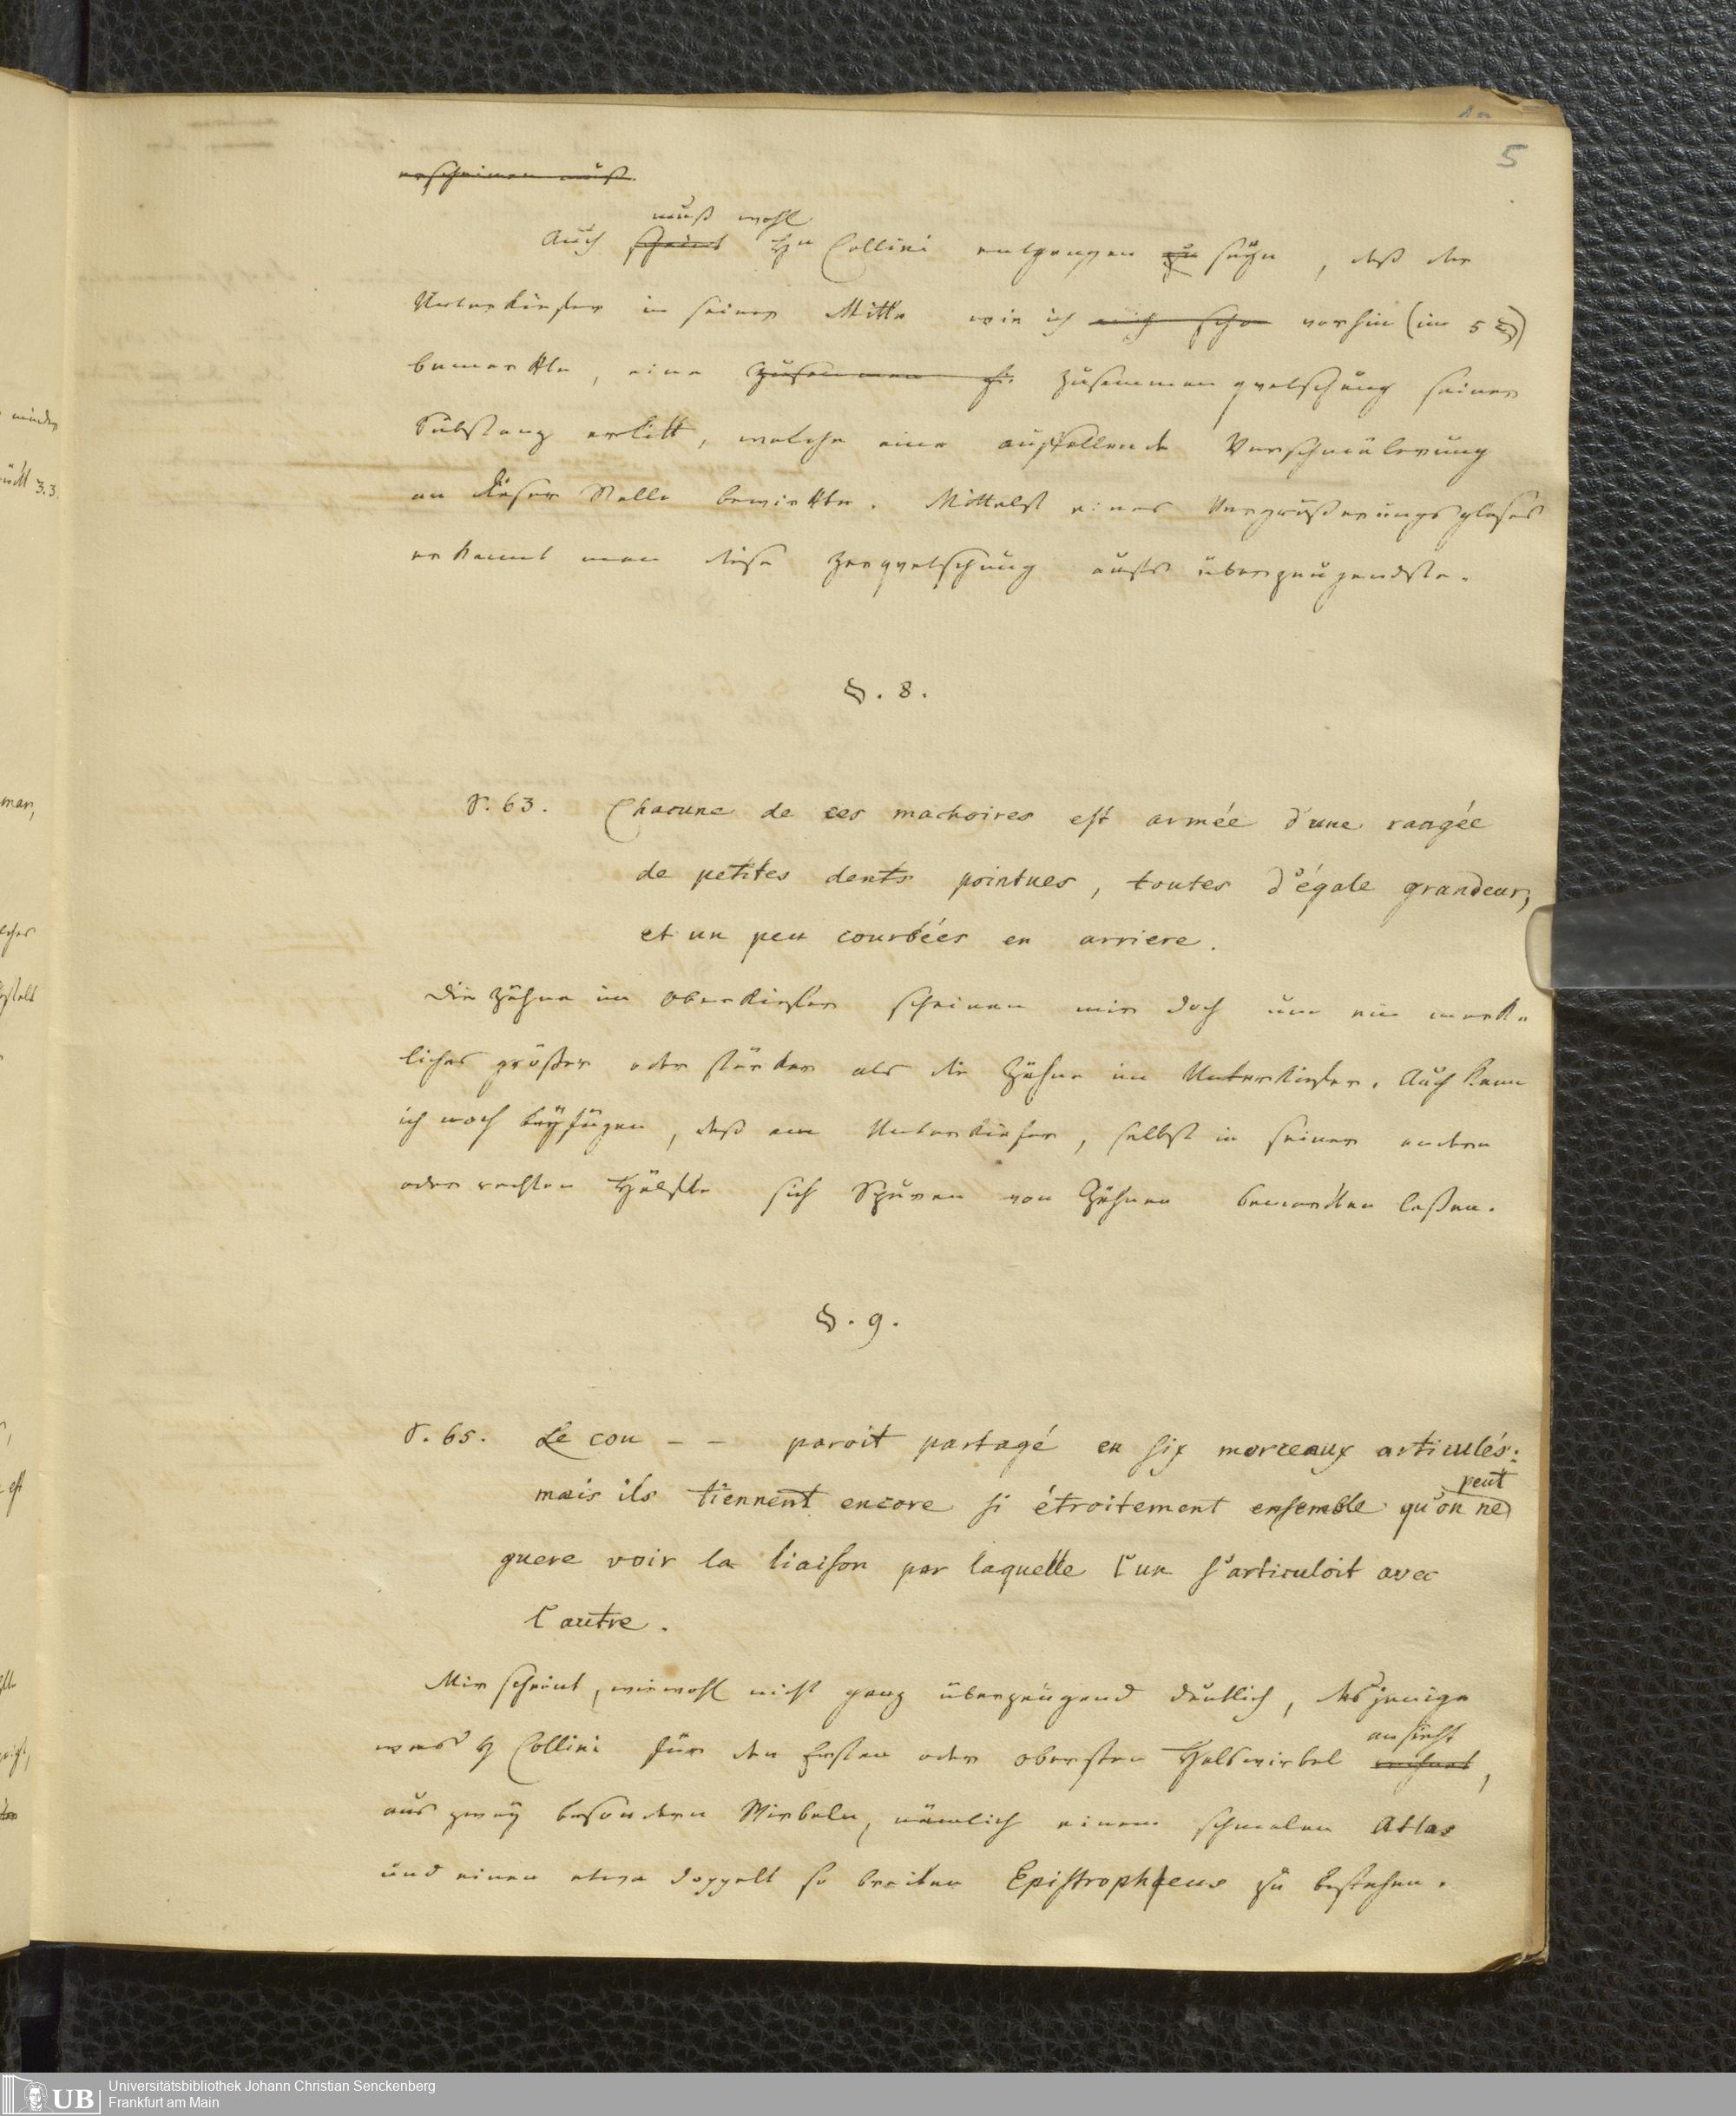 5
erscheinen muß.
muß wohl
Auch scheint Hn Collini entgangen zu seyn, daß der
Unterkiefer in seiner Mitte wie ich vorhin (im 5 §)
bemerkte, eine zusammen zusammenquetschung seiner
Substanz erlitt, welche eine auffallende Verschmälerung
an dieser Stelle bewirkte. Mittelst eines Vergrößerungsglases
erkennt man diese Zerquetschung aufs überzeugendste.
§. 8.
S. 63. Chacune de ces machoires est armée d'une rangée
de petites dents pointues, toutes d'égale grandeur,
et un peu courbées en arriere.
Die Zähne im Oberkiefer scheinen mir doch um ein merk-
liches größer oder stärker als die Zähne im Unterkiefer. Auch kann
ich noch beyfügen, daß am Unterkiefer, selbst in seiner andern
oder rechten Hälfte sich Spuren von Zähnen bemerken laßen.
§. 9.
S. 65. Le cou - - paroit partagé en six morceaux articulés:
peut
mais ils tiennent encore si étroitement ensemble qu'on ne
guere voir la liaison par laquelle l'un s'articuloit avec
l'autre.
Mir scheint, wiewohl nicht ganz überzeugend deutlich, dasjenige
ansieht
was H Collini für den Ersten oder obersten Halswirbel rechnet,
aus zwey besondern Wirbeln, nämlich einem schmalen Atlas
und einen etwa doppelt so breiten Epistropheus zu bestehen.
UB
Universitätsbibliothek Johann Christian Senckenberg
Frankfurt am Main